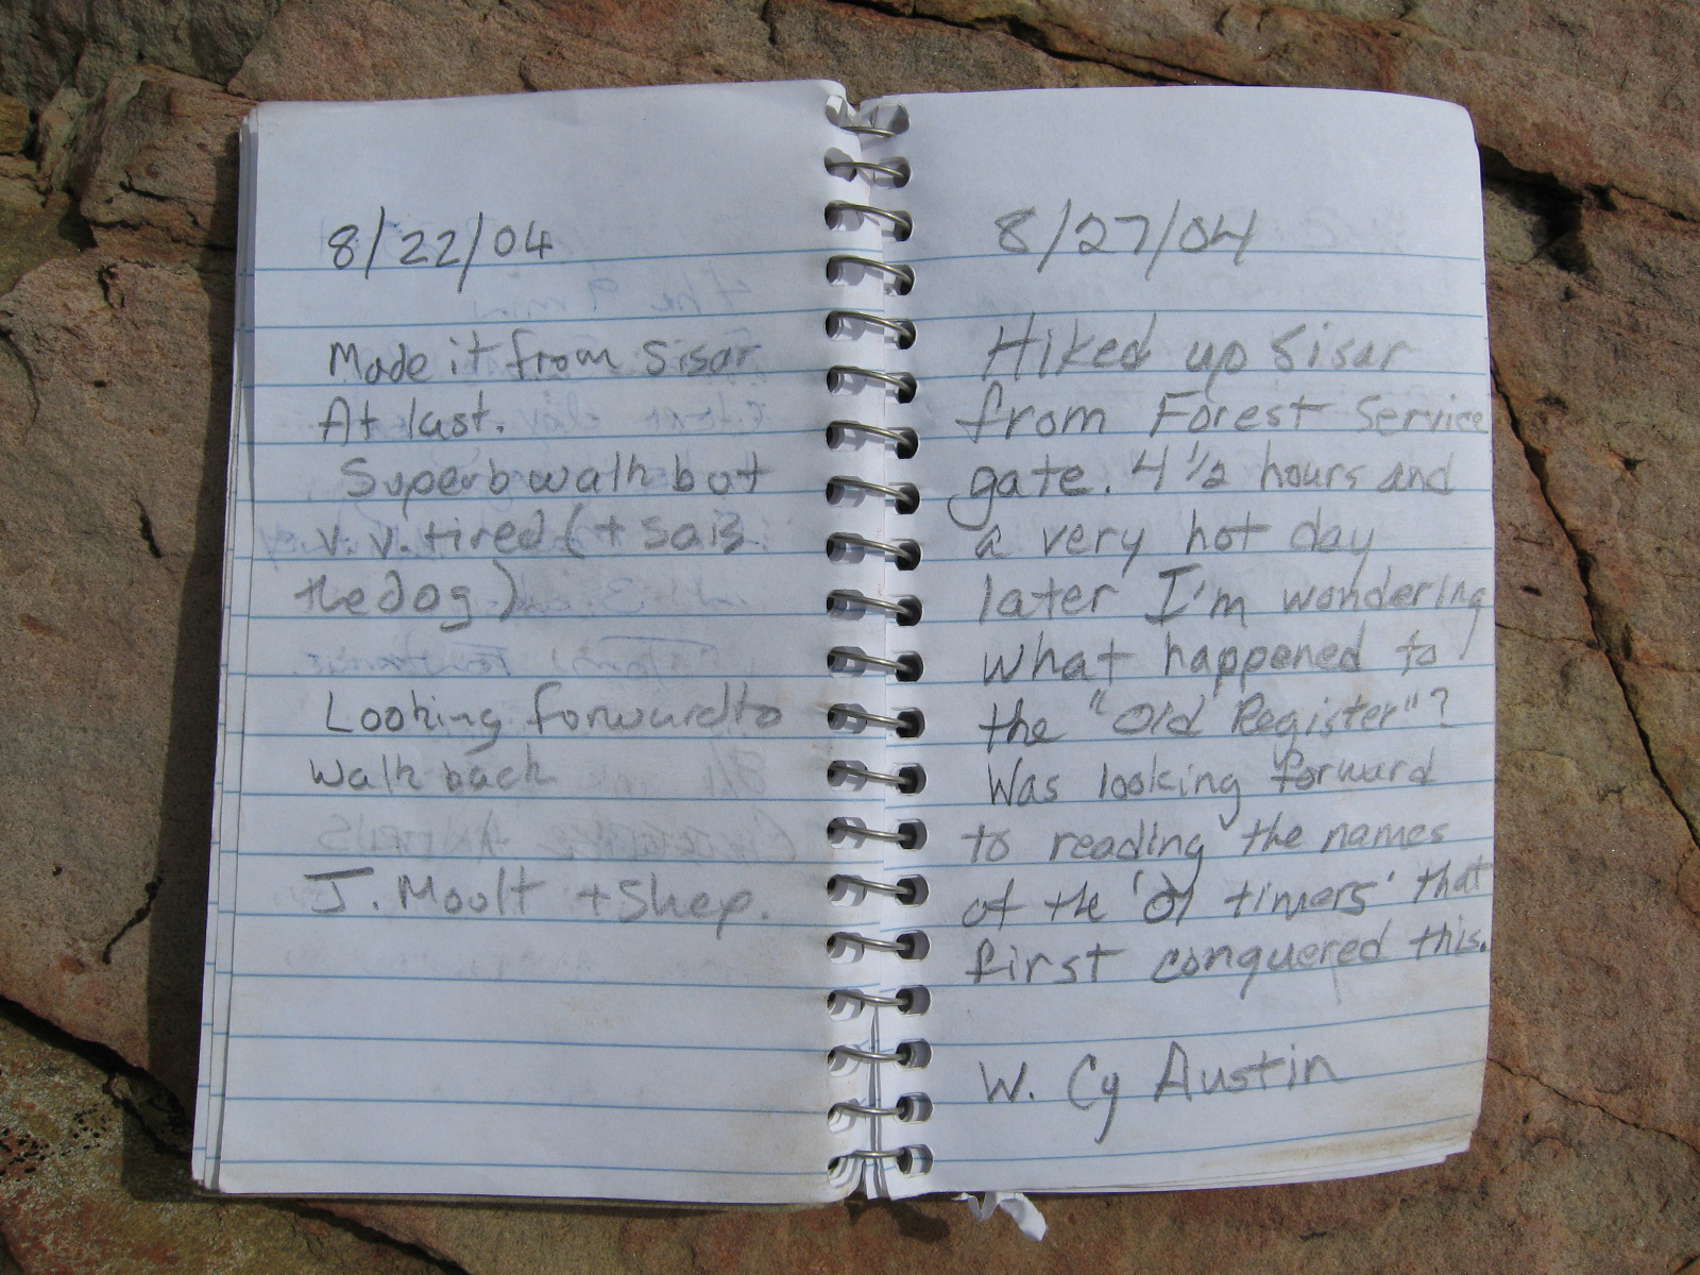 8/22/04
Made it from Sisar
At last.
Superb walk but
v. v. tired (+ so is
the dog)
Looking forward to
Walk back
J. Moult + Shep.
8/27/04
Hiked up Sisar
from Forest Service
gate. 4 1/2 hours and
a very hot day
later I'm wondering
what happened to
the "Old Register"?
Was looking forward
to reading the names
of the 'ol timers' that
first conquered this.
W. Cy Austin